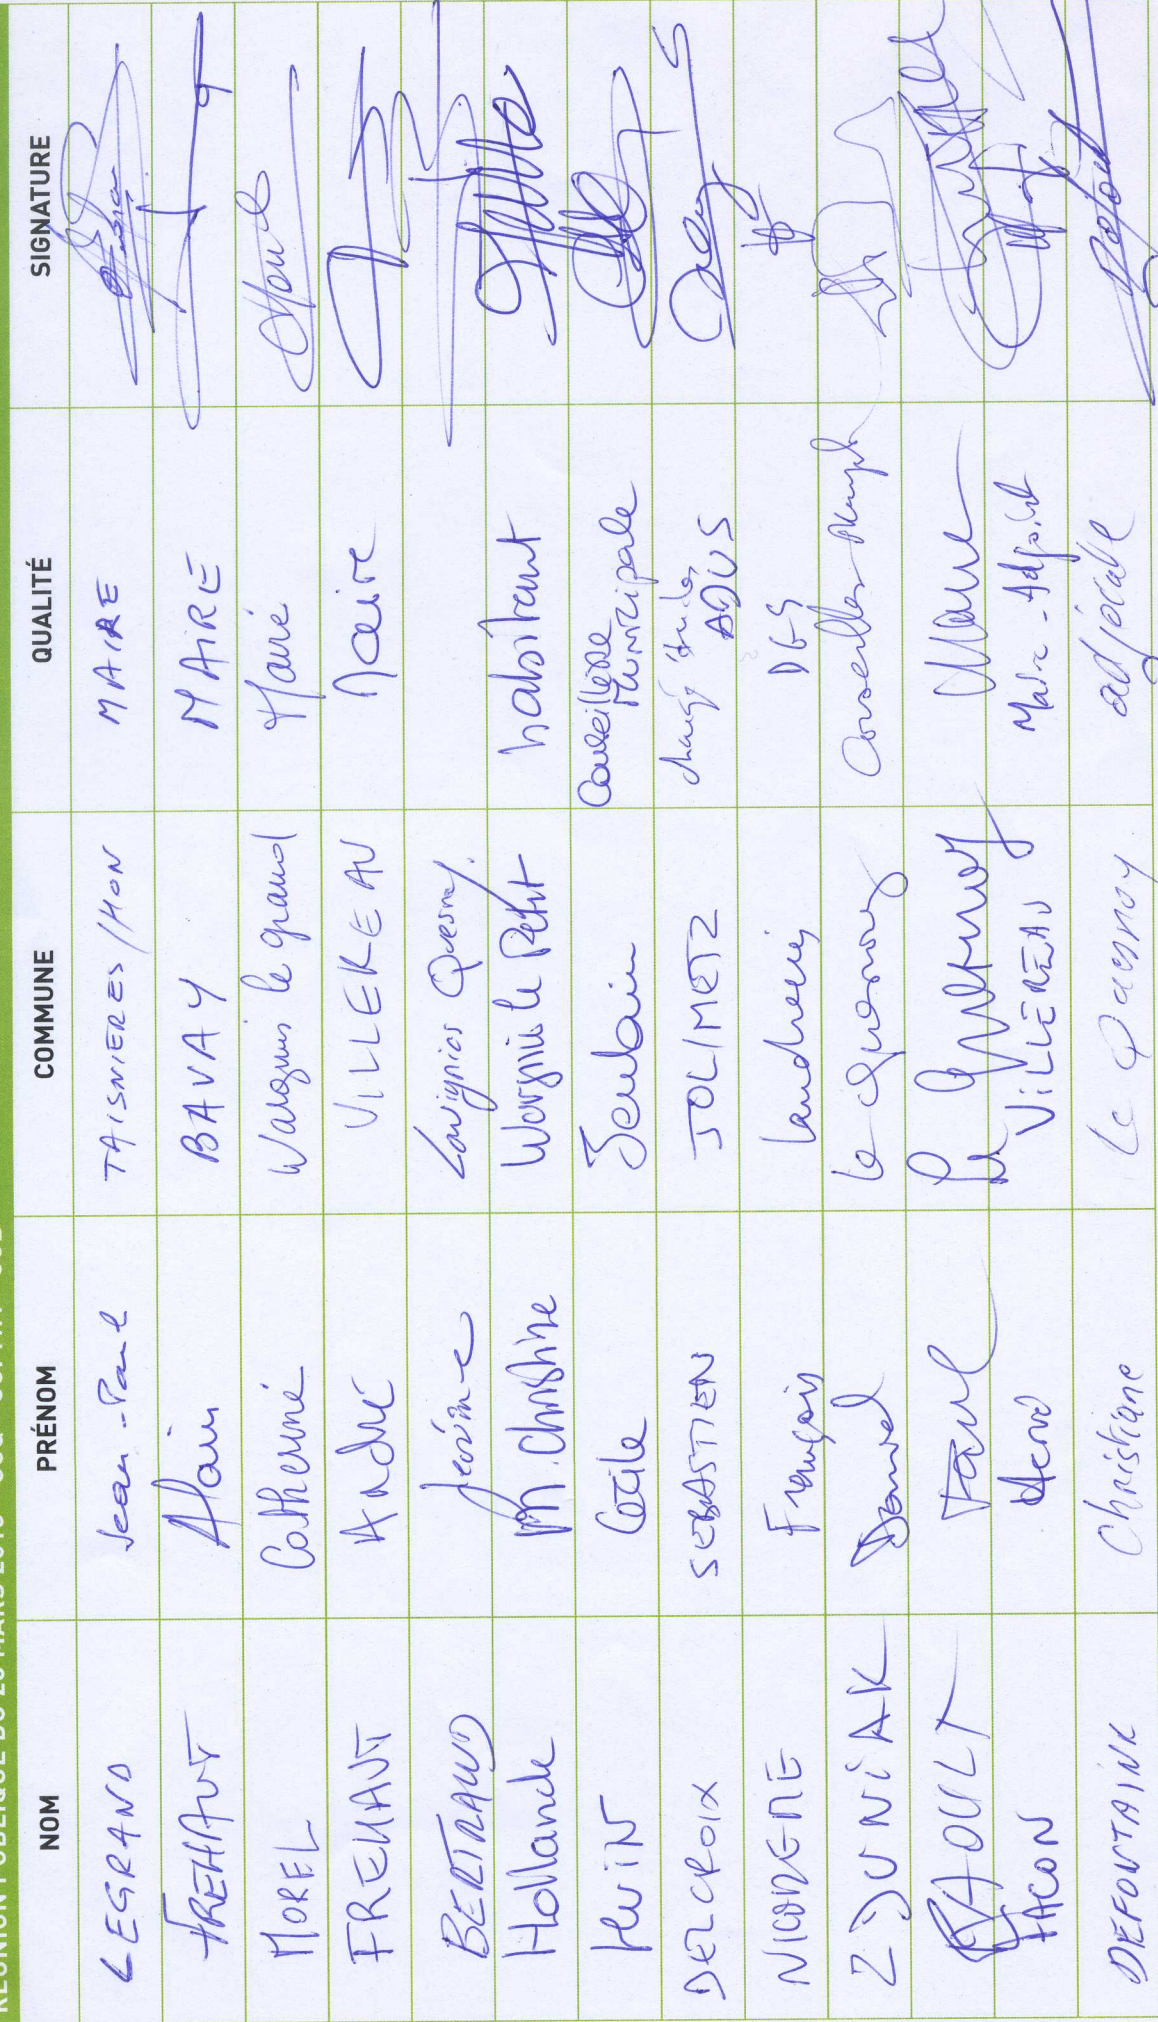 NOM PRÉNOM COMMUNE QUALITÉ SIGNATURE
LEGRAND Jean-Paul TAISNIERES/HON MAIRE
FREHAUT Alain BAVAY MAIRE
MOREL Catherine Wargnies le grand Maire
FREHAUT André VILLEREAU Maire
BERTRAND Jérôme Louvignies Quesnoy.
Hollande M. Christine Wargnie le Petit habitant
HUIN Cécile Jenlain Conseillère Municipale
DELCROIX SEBASTIEN JOLIMETZ chargé études ADUS
NICODEME François Landrecies DGS
ZDUNIAK Daniel Le Quesnoy Conseiller
RAOULT Paul Le Quesnoy Maire
FACON Hervé VILLEREAU Maire-Adjoint
DEFONTAINE Christiane Le Quesnoy adjointe